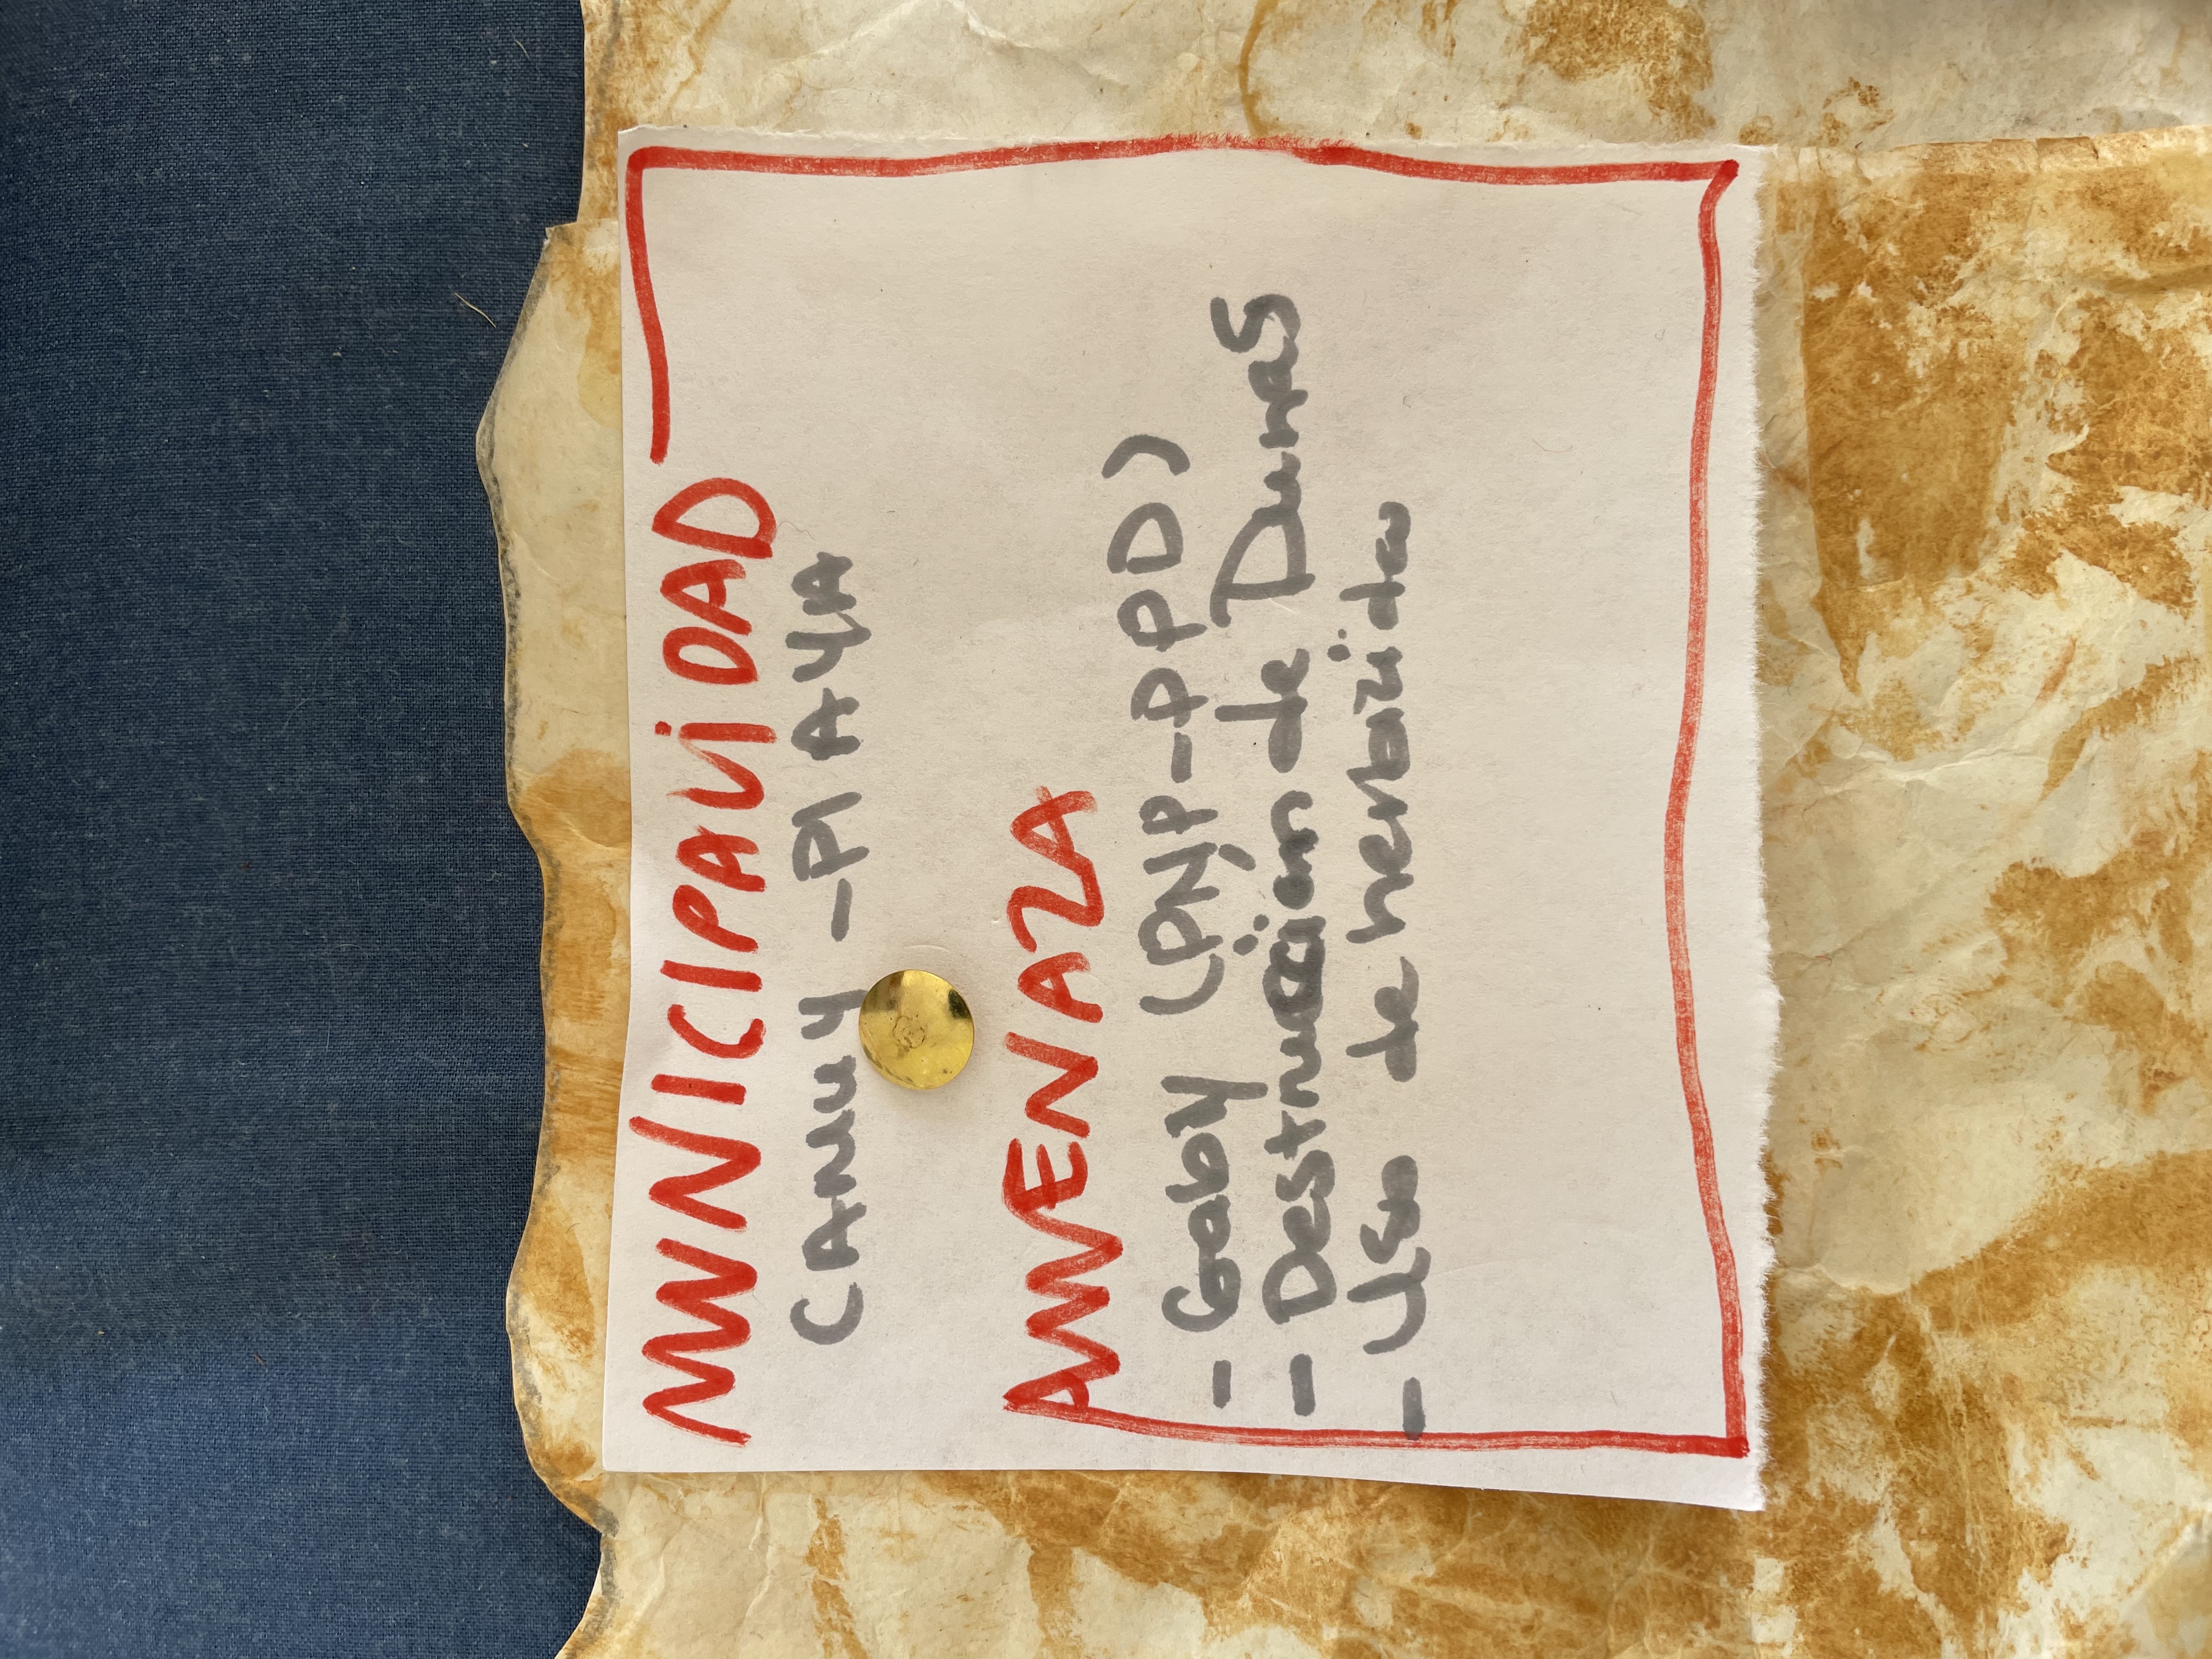 MUNICIPALIDAD
CAmuy - PlAyA
AMENAZA
- Gaby (PNP-PPD)
- Destrucción de Dunas
- Uso de herbizida